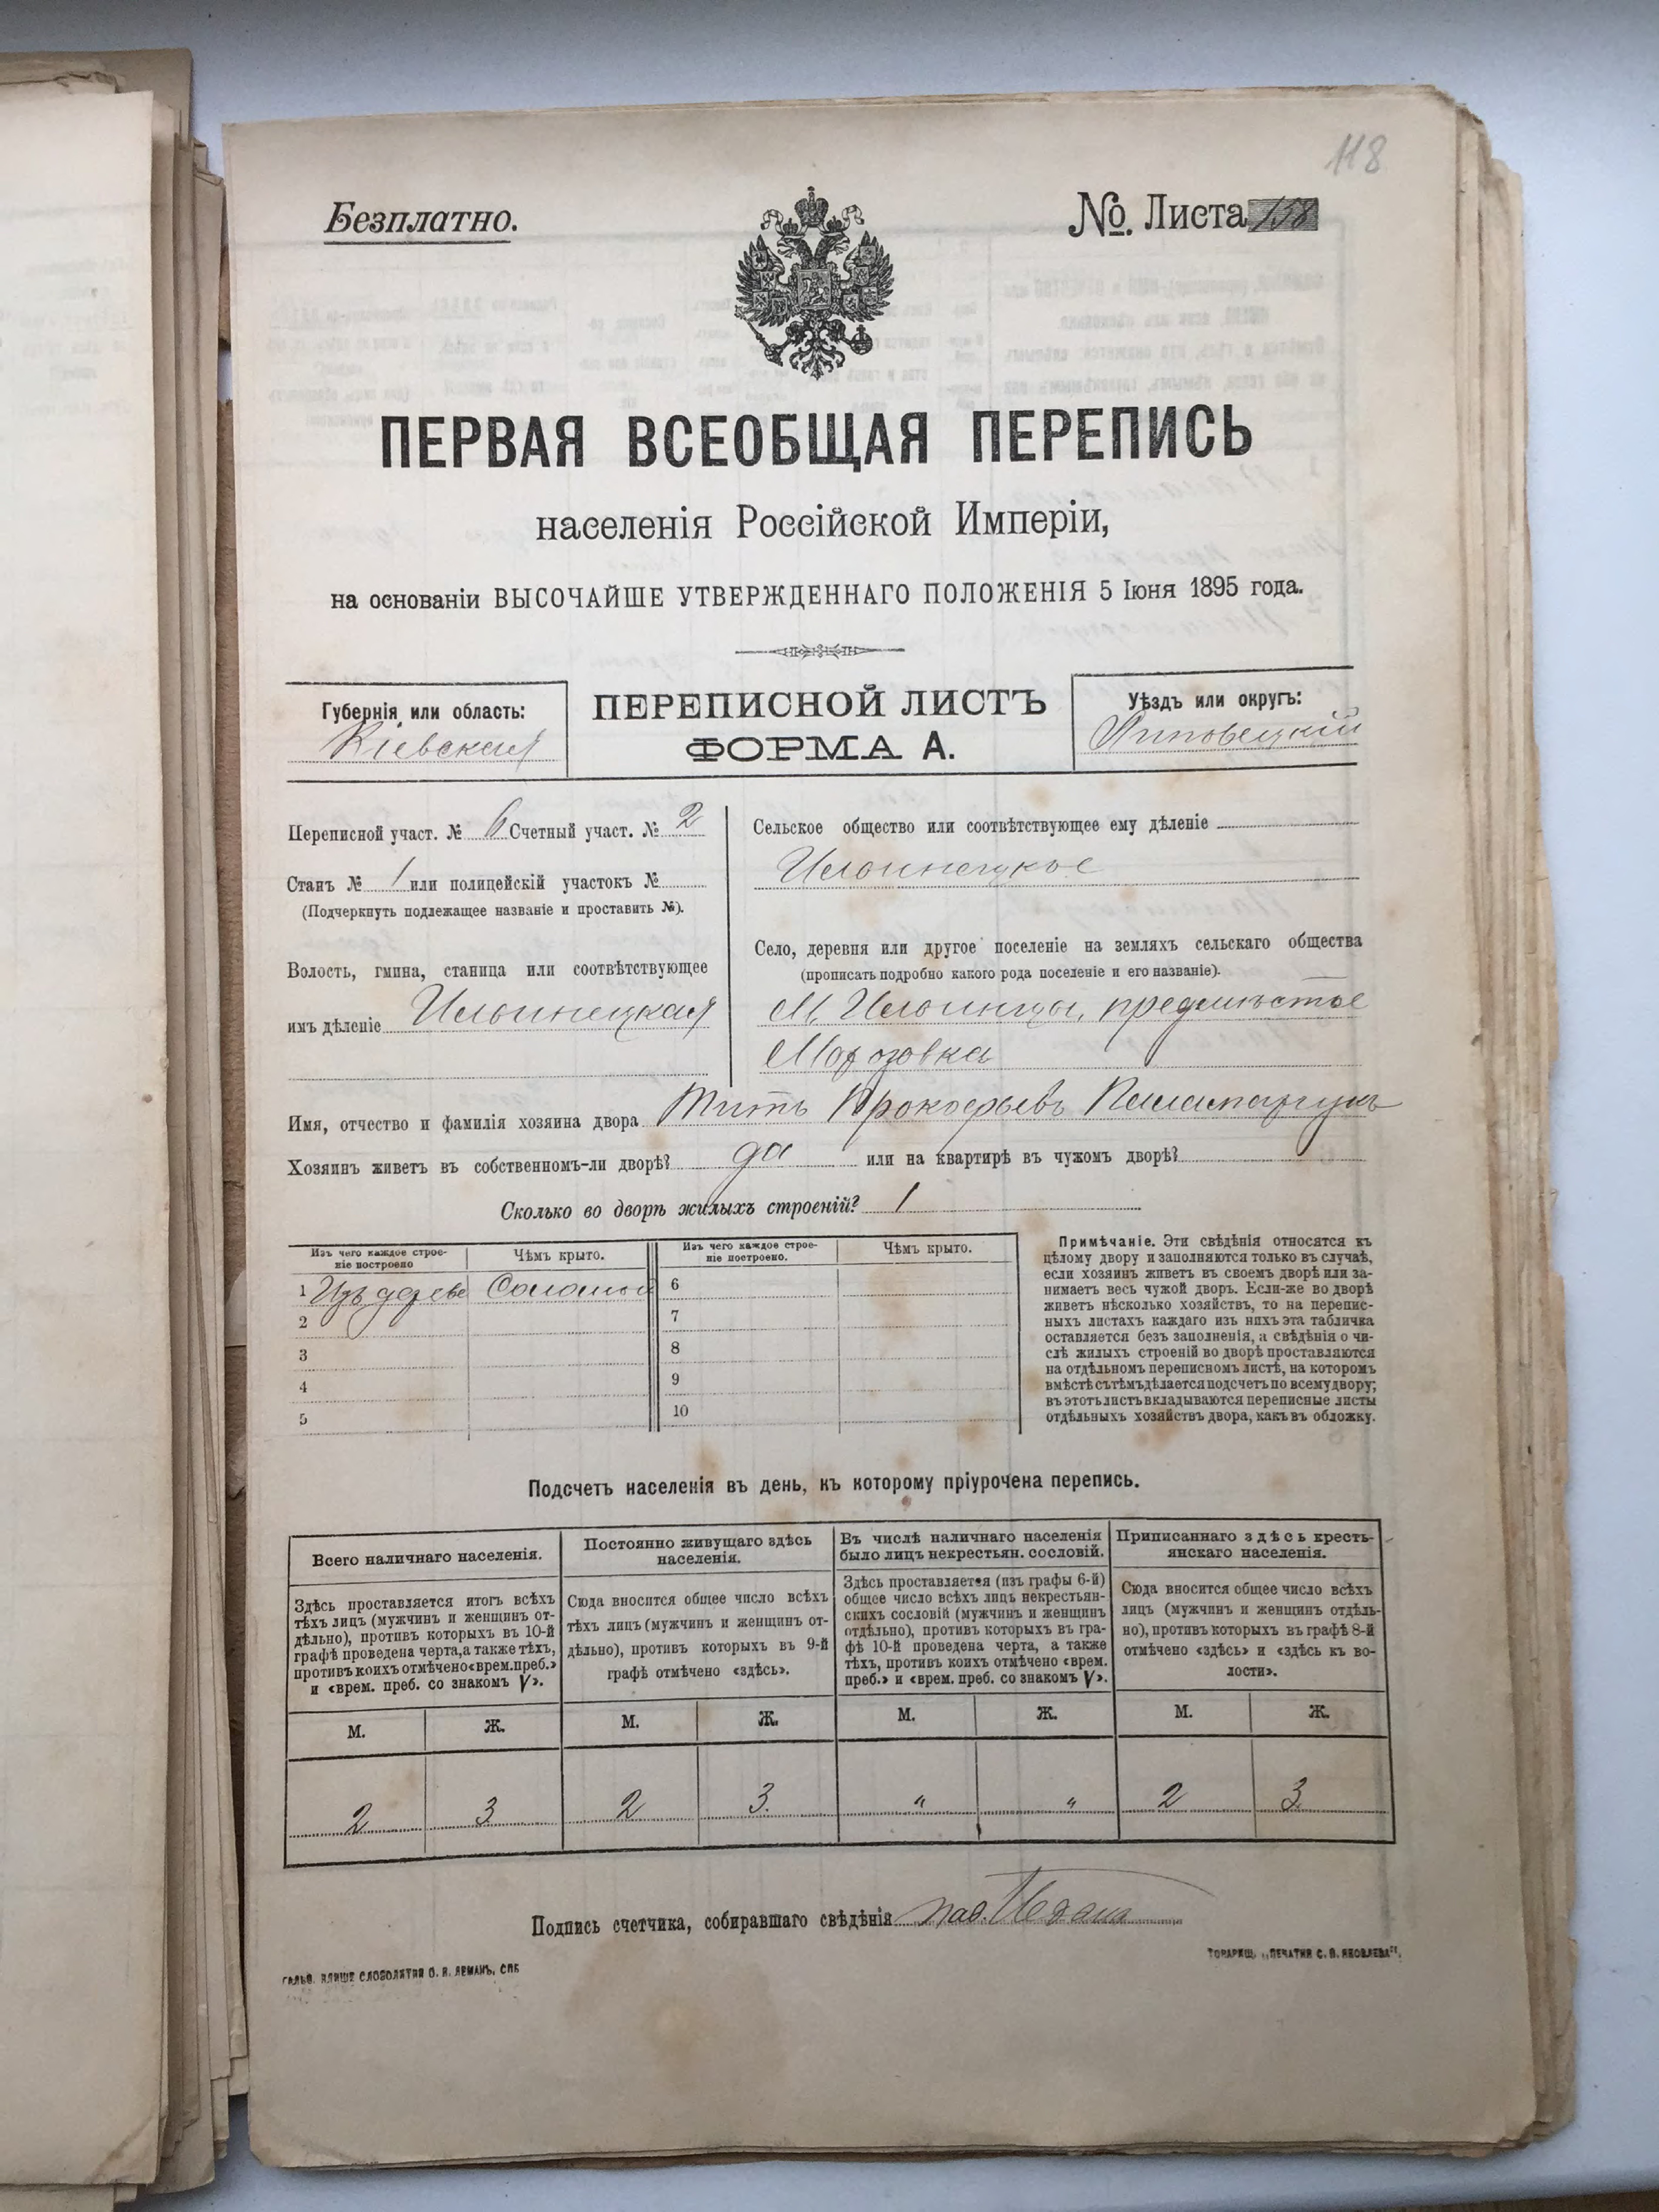 118
Безплатно.
№. Листа 158
ПЕРВАЯ ВСЕОБЩАЯ ПЕРЕПИСЬ
населенія Россійской Имперіи,
на основаніи ВЫСОЧАЙШЕ УТВЕРЖДЕННАГО ПОЛОЖЕНІЯ 5 Іюня 1895 года.
Губернія или область:
Кіевская
ПЕРЕПИСНОЙ ЛИСТЪ
ФОРМА А.
Уѣздъ или округъ:
Липовецкій
Переписной участ. № 6 Счетный участ. № 2
Станъ № 1 или полицейскій участокъ №
(Подчеркнуть подлежащее названіе и проставить №).
Волость, гмина, станица или соотвѣтствующее
имъ дѣленіе Ильинецкая
Сельское общество или соотвѣтствующее ему дѣленіе
Ильинецкое
Село, деревня или другое поселеніе на земляхъ сельскаго общества
(прописать подробно какого рода поселеніе и его названіе).
М. Ильинцы, предмѣстье
Морозовка
Имя, отчество и фамилія хозяина двора Титъ Прокофьевъ Паламарчукъ
Хозяинъ живетъ въ собственномъ-ли дворѣ? да или на квартирѣ въ чужомъ дворѣ?
Сколько во дворѣ жилыхъ строеній? 1
Изъ чего каждое строе-
ніе построено
Чѣмъ крыто.
Изъ чего каждое строе-
ніе построено.
Чѣмъ крыто.
1 Изъ дерева Соломой
2
3
4
5
6
7
8
9
10
Примѣчаніе. Эти свѣдѣнія относятся къ
цѣлому двору и заполняются только въ случаѣ,
если хозяинъ живетъ въ своемъ дворѣ или за-
нимаетъ весь чужой дворъ. Если-же во дворѣ
живетъ нѣсколько хозяйствъ, то на перепис-
ныхъ листахъ каждаго изъ нихъ эта табличка
оставляется безъ заполненія, а свѣдѣнія о чи-
слѣ жилыхъ строеній во дворѣ проставляются
на отдѣльномъ переписномъ листѣ, на которомъ
вмѣстѣ съ тѣмъ дѣлается подсчетъ по всему двору;
въ этотъ листъ вкладываются переписные листы
отдѣльныхъ хозяйствъ двора, какъ въ обложку.
Подсчетъ населенія въ день, къ которому пріурочена перепись.
Всего наличнаго населенія.
Здѣсь проставляется итогъ всѣхъ
тѣхъ лицъ (мужчинъ и женщинъ от-
дѣльно), противъ которыхъ въ 10-й
графѣ проведена черта, а также тѣхъ,
противъ коихъ отмѣчено «врем. преб.»
и «врем. преб. со знакомъ V».
М. Ж.
2 3
Постоянно живущаго здѣсь
населенія.
Сюда вносится общее число всѣхъ
тѣхъ лицъ (мужчинъ и женщинъ от-
дѣльно), противъ которыхъ въ 9-й
графѣ отмѣчено «здѣсь».
М. Ж.
2 3.
Въ числѣ наличнаго населенія
было лицъ некрестьян. сословій.
Здѣсь проставляется (изъ графы 6-й)
общее число всѣхъ лицъ некрестьян-
скихъ сословій (мужчинъ и женщинъ
отдѣльно), противъ которыхъ въ гра-
фѣ 10-й проведена черта, а также
тѣхъ, противъ коихъ отмѣчено «врем.
преб.» и «врем. преб. со знакомъ V».
М. Ж.
" "
Приписаннаго здѣсь кресть-
янскаго населенія.
Сюда вносится общее число всѣхъ
лицъ (мужчинъ и женщинъ отдѣль-
но), противъ которыхъ въ графѣ 8-й
отмѣчено «здѣсь» и «здѣсь къ во-
лости».
М. Ж.
2 3
Подпись счетчика, собиравшаго свѣдѣнія
ТОВАРИЩ. „ПЕЧАТНЯ С. П. ЯКОВЛЕВА“.
СЛОВОЛИТНЯ О. И. ЛЕМАНЪ, СПБ